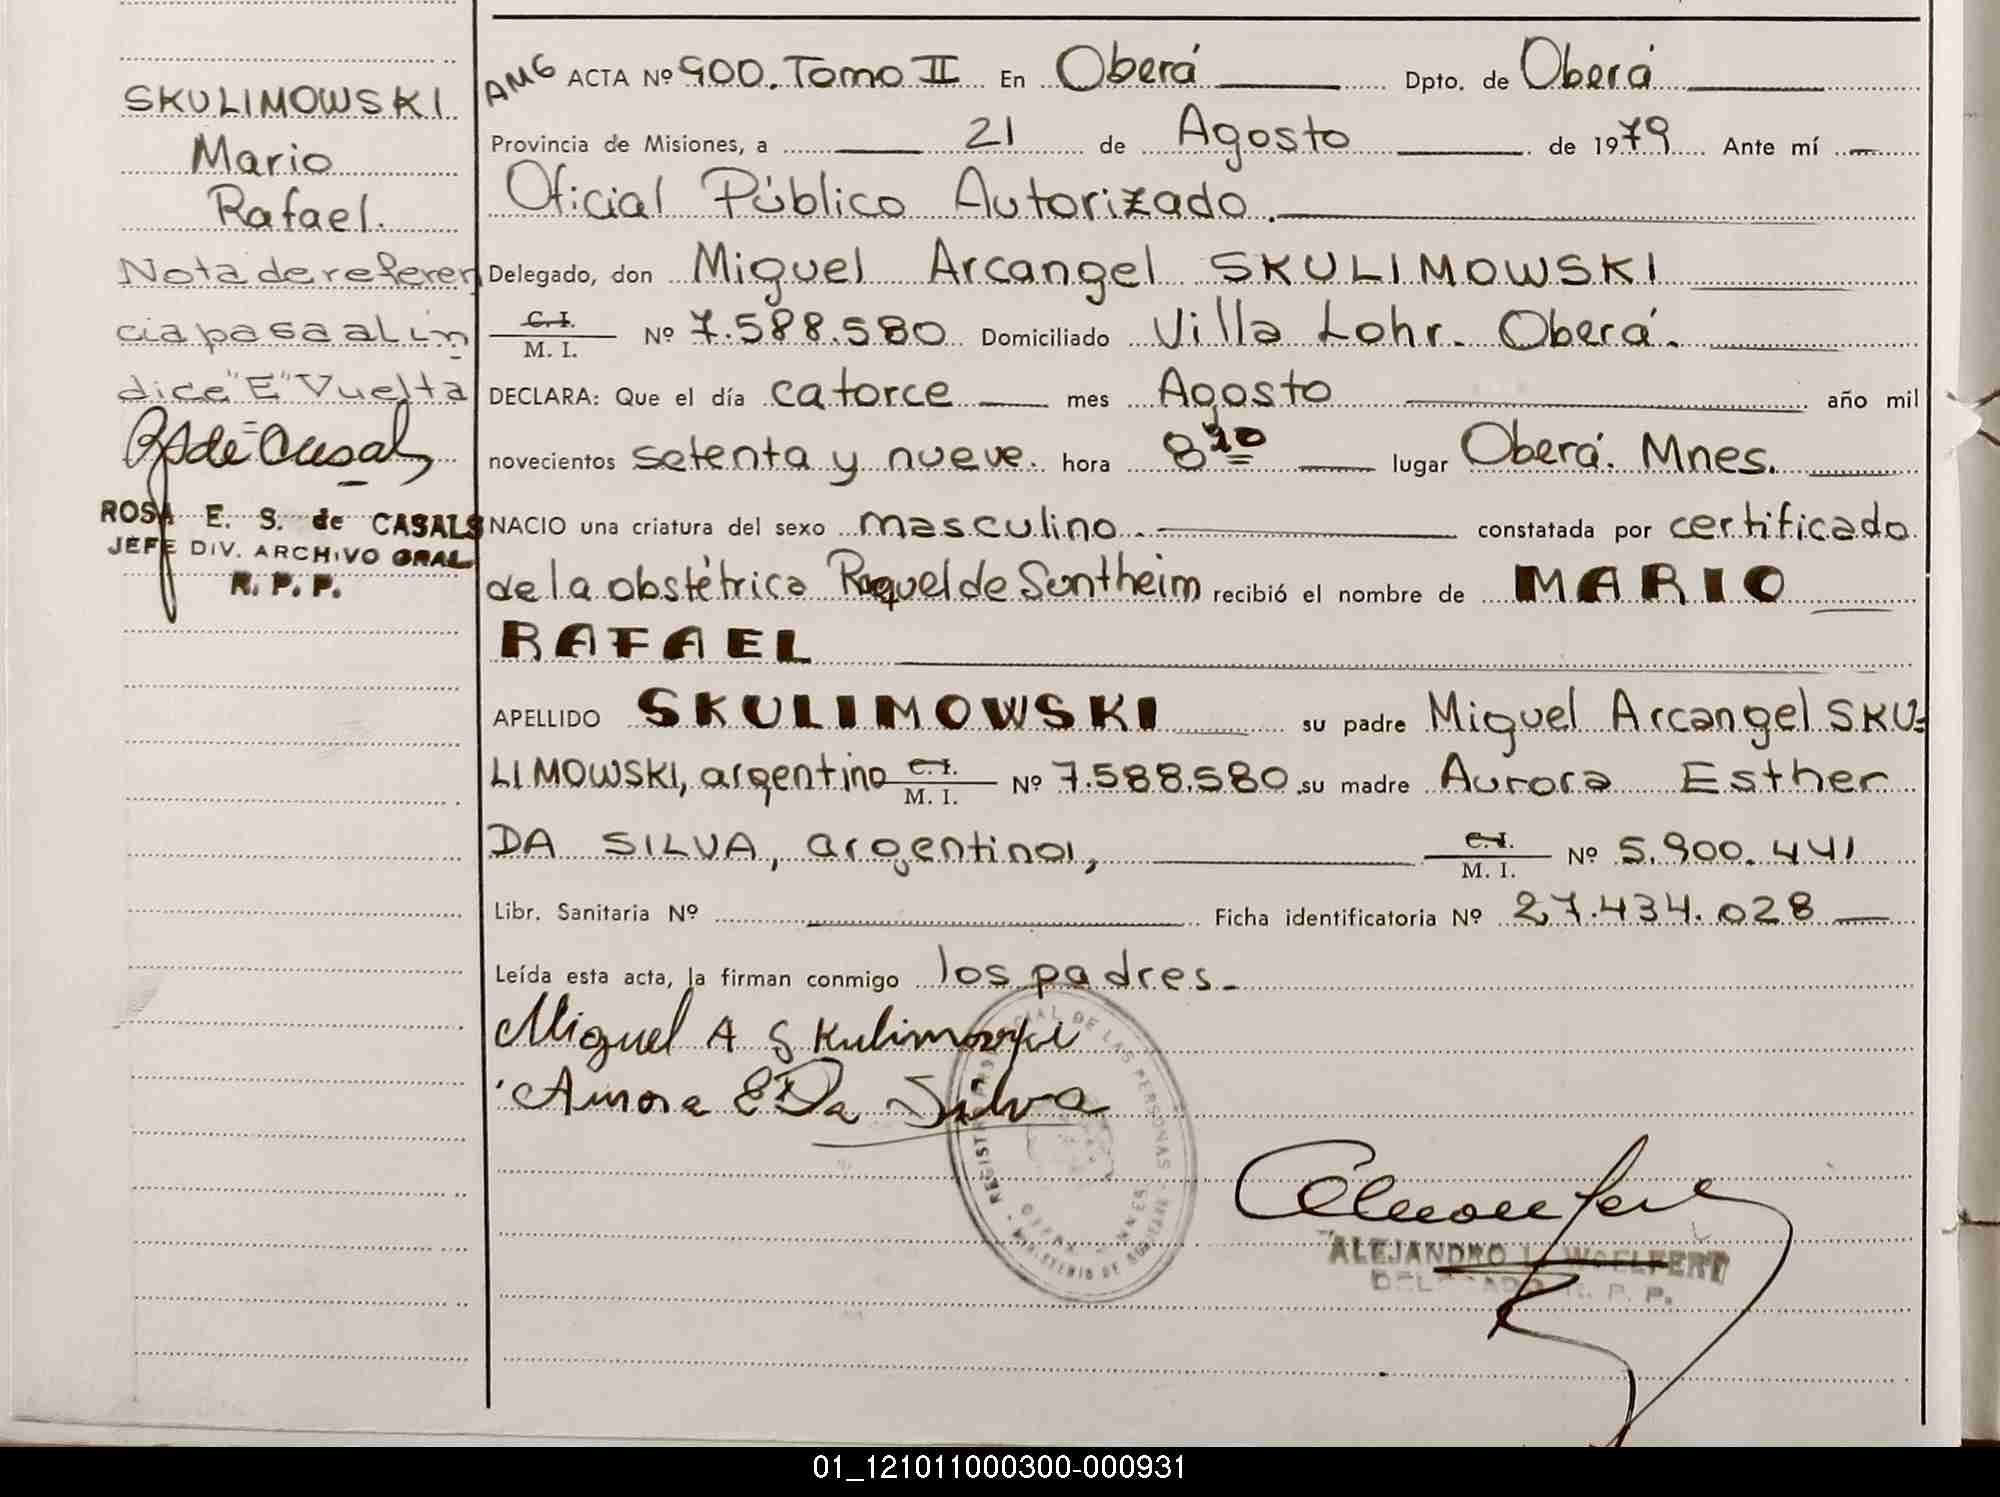 SKULIMOWSKI
Mario
Rafael.
Nota de referen
cia pasa al in
dice "E" Vuelta
ROSA E. S. de CASALS
JEFE DIV. ARCHIVO GRAL
R. P. P.
AMG ACTA Nº 900. Tomo II En Oberá Dpto. de Oberá
Provincia de Misiones, a 21 de Agosto de 1979 Ante mí
Oficial Público Autorizado.
Delegado, don Miguel Arcangel SKULIMOWSKI
C. I.
M. I. Nº 7.588.580 Domiciliado Villa Lohr. Oberá.
DECLARA: Que el día catorce mes Agosto año mil
novecientos setenta y nueve. hora 8 lugar Oberá. Mnes.
NACIO una criatura del sexo masculino. constatada por certificado
de la obstétrica Raquel de Sontheim recibió el nombre de MARIO
RAFAEL
APELLIDO SKULIMOWSKI su padre Miguel Arcangel SKU=
LIMOWSKI, argentino C. I. Nº 7.588.580 su madre Aurora Esther
M. I.
DA SILVA, argentina, C. I. Nº 5.900.441
M. I.
Libr. Sanitaria Nº Ficha identificatoria Nº 27.434.028
Leída esta acta, la firman conmigo los padres.
Miguel A Skulimoski
Aurora E Da Silva
ALEJANDRO L. WOELFERT
DELEGADO R. P. P.
01_121011000300-000931